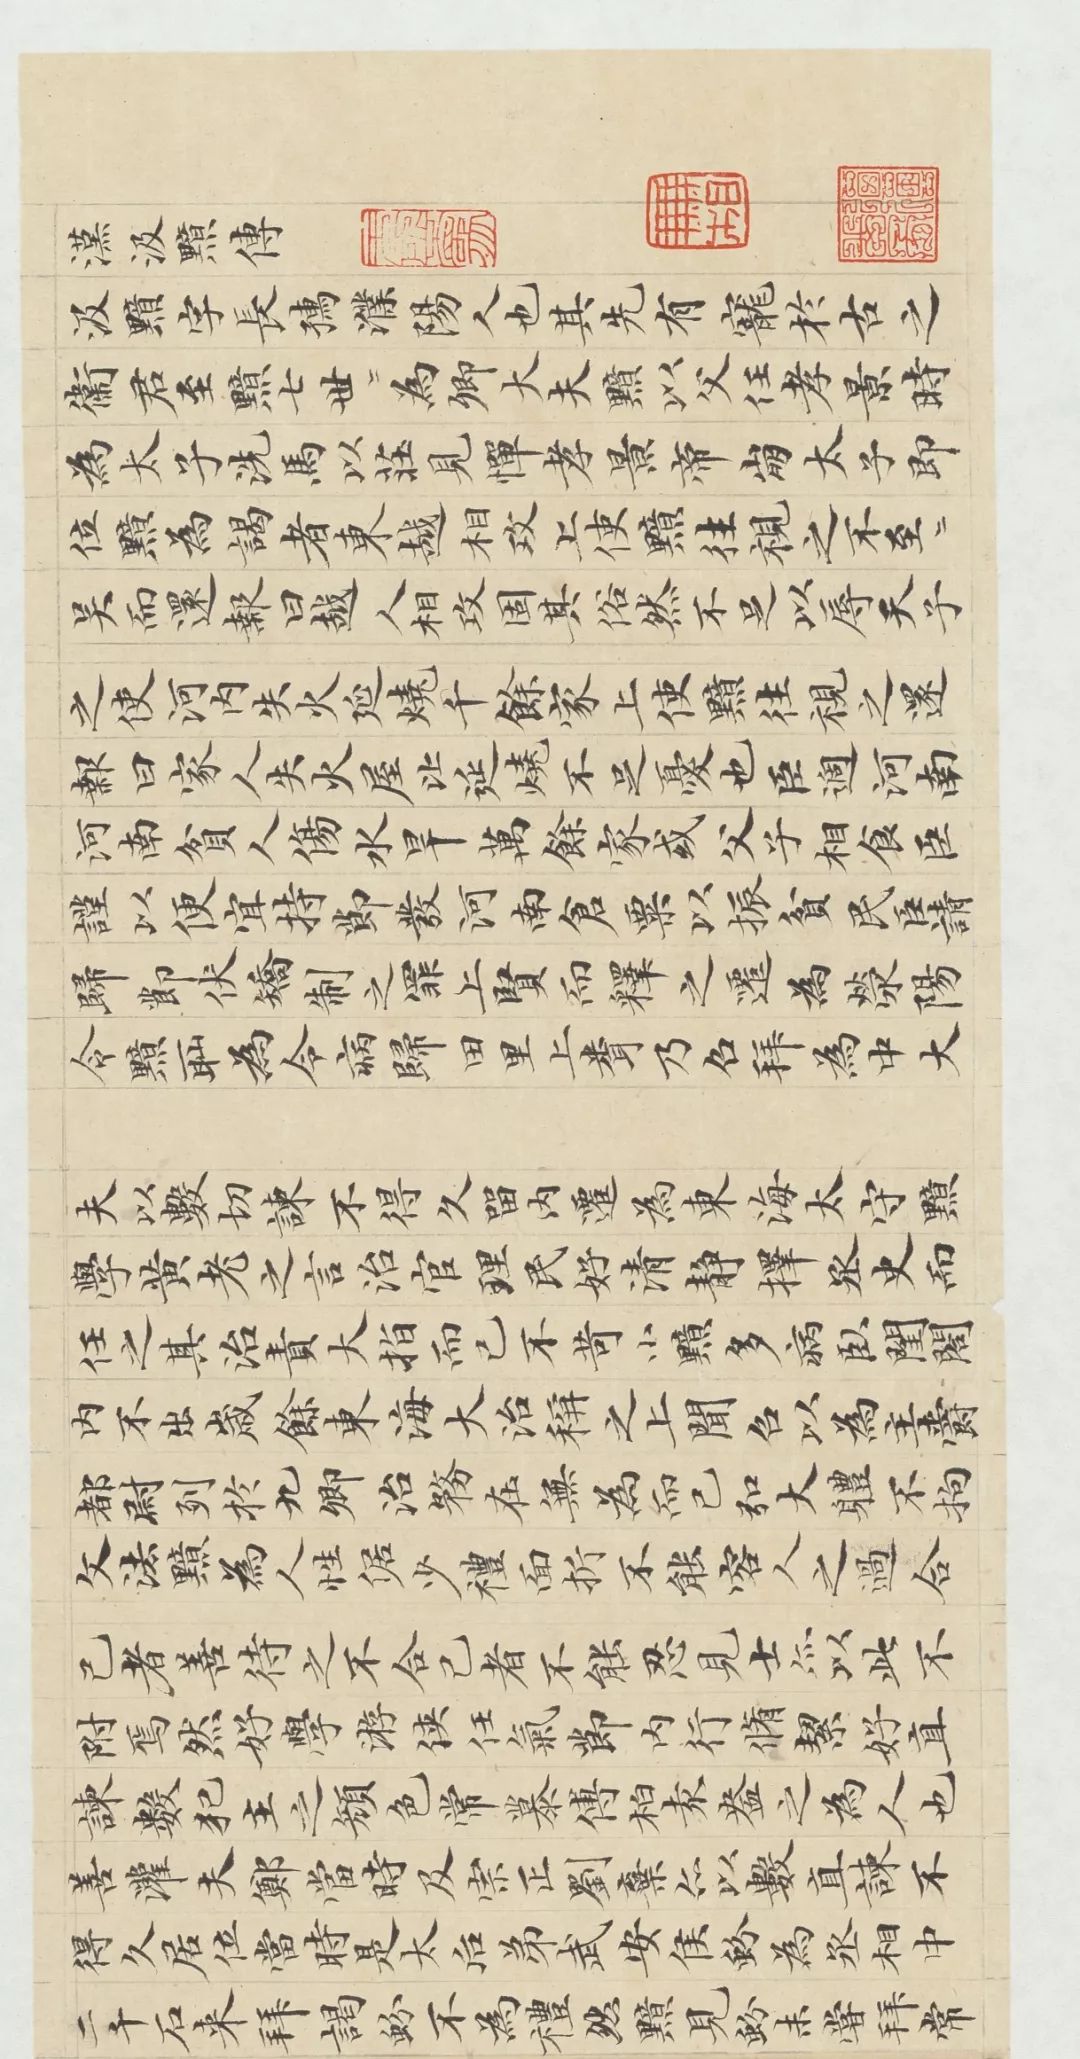 漢汲黯傳
汲黯字長孺濮陽人也其先有寵於古之
衛君至黯七世〻為卿大夫黯以父任孝景時
為太子洗馬以莊見憚孝景帝崩太子即
位黯為謁者東越相攻上使黯往視之不至〻
吴而還報曰越人相攻固其俗然不足以辱天子
之使河内失火延燒千餘家上使黯往視之還
報曰家人失火屋比延燒不足憂也臣過河南
河南貧人傷水旱萬餘家或父子相食臣
謹以便宜持節發河南倉粟以振貧民臣請
歸節伏矯制之罪上賢而釋之遷為滎陽
令黯恥為令病歸田里上聞乃召拜為中大
夫以數切諫不得久留内遷為東海太守黯
學黄老之言治官理民好清静擇丞史而
任之其治責大指而已不苛小黯多病臥閨閤
内不出歲餘東海大治稱之上聞召以為主爵
都尉列於九卿治務在無為而已弘大體不拘
文法黯為人性倨少禮面折不能容人之過合
己者善待之不合己者不能忍見士亦以此不
附焉然好學游俠任氣節内行脩絜好直
諫數犯主之顔色常慕傅柏袁盎之為人也
善灌夫鄭當時及宗正劉棄亦以數直諫不
得久居位當時是太后弟武安侯蚡為丞相中
二千石来拜謁蚡不為禮然黯見蚡未嘗拜常